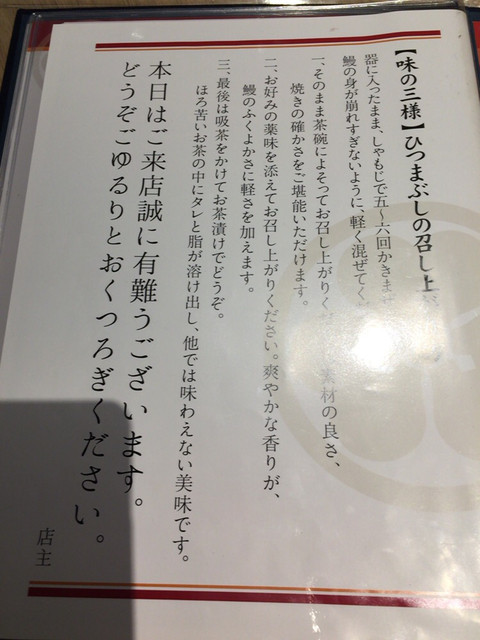 【味の三様】ひつまぶしの召し上
器に入ったまま、しゃもじで五～六回かきまぜ
鰻の身が崩れすぎないように、軽く混ぜてく
一、そのまま茶碗によそってお召し上がりく 素材の良さ、
焼きの確かさをご堪能いただけます。
二、お好みの薬味を添えてお召し上がりください。爽やかな香りが、
鰻のふくよかさに軽さを加えます。
三、最後は吸茶をかけてお茶漬けでどうぞ。
ほろ苦いお茶の中にタレと脂が溶け出し、他では味わえない美味です。
本日はご来店誠に有難うございます。
どうぞごゆるりとおくつろぎください。
店主